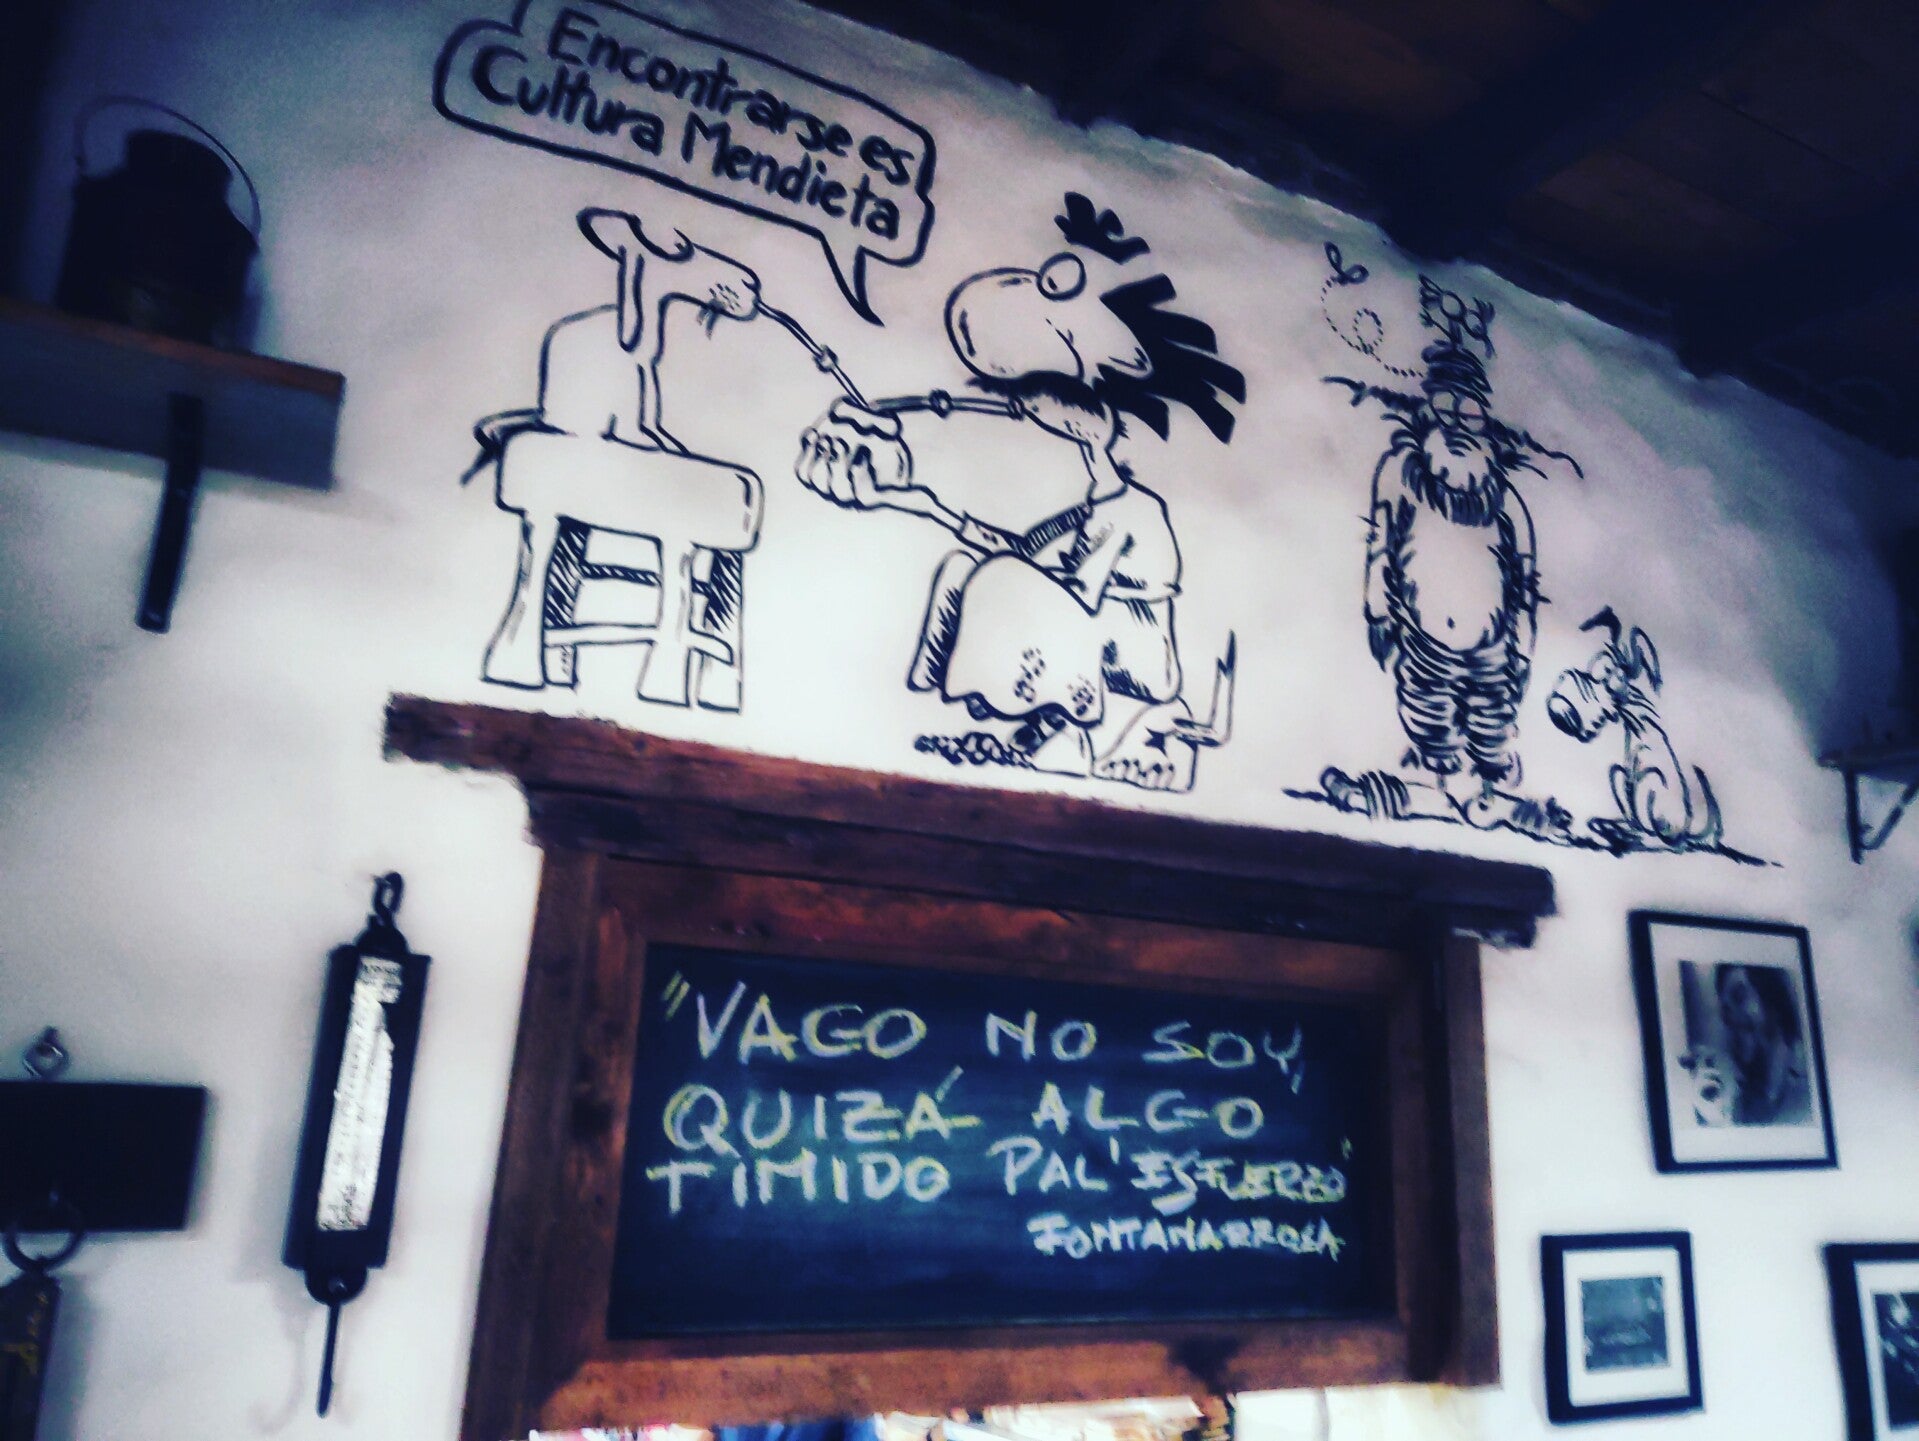 Encontrarse es
Cultura Mendieta
"VAGO NO SOY,
QUIZÁ ALGO
TIMIDO PAL' ESFUERZO"
FONTANARROSA